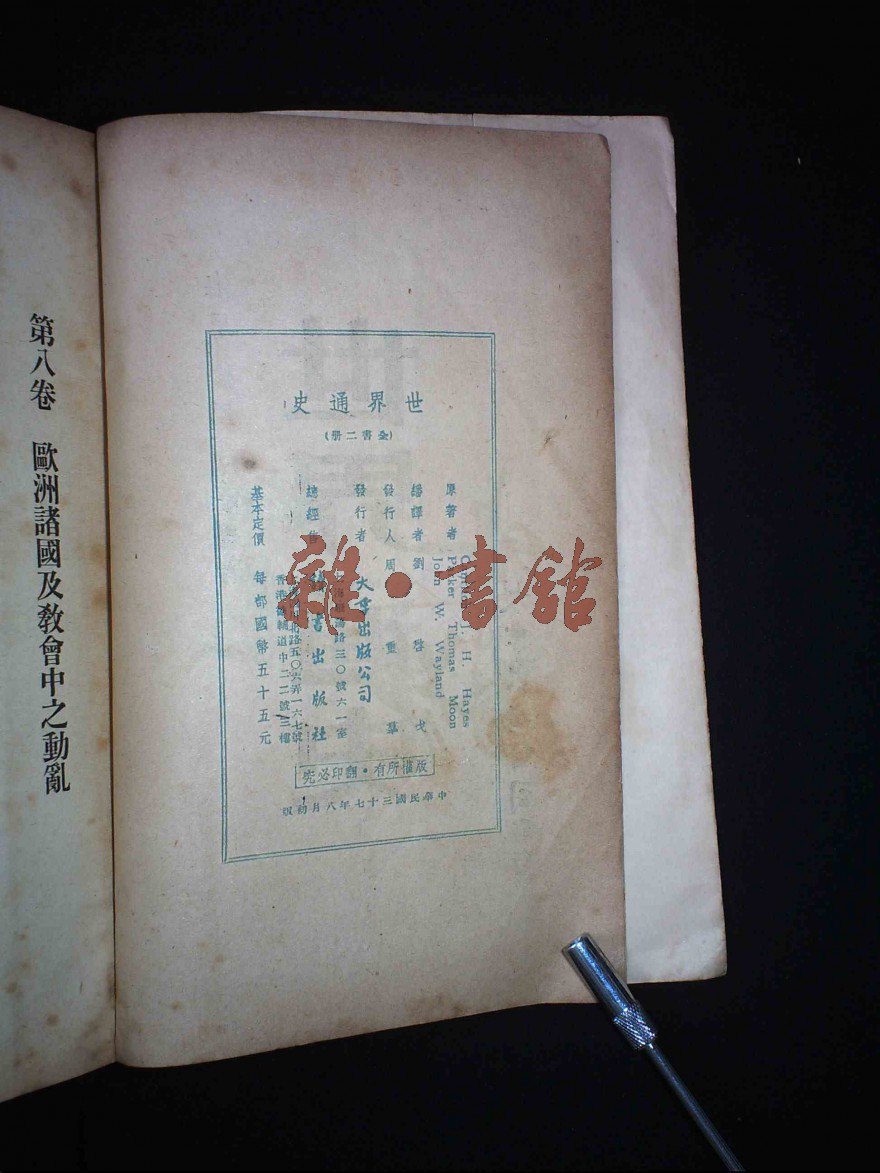 世界通史
(全書二冊)
原著者
J. H. Hayes
Parker Thomas Moon
John W. Wayland
編譯者 劉啓戈
發行人 周重
發行者 大孚出版公司
路三〇號六一室
總經
書出版社
路五〇六弄一六七號
香港 道中二二號三樓
基本定價 每部國幣五十五元
版權所有・翻印必究
中華民國三十七年八月初版
第八卷 歐洲諸國及敎會中之動亂
雜・書舘